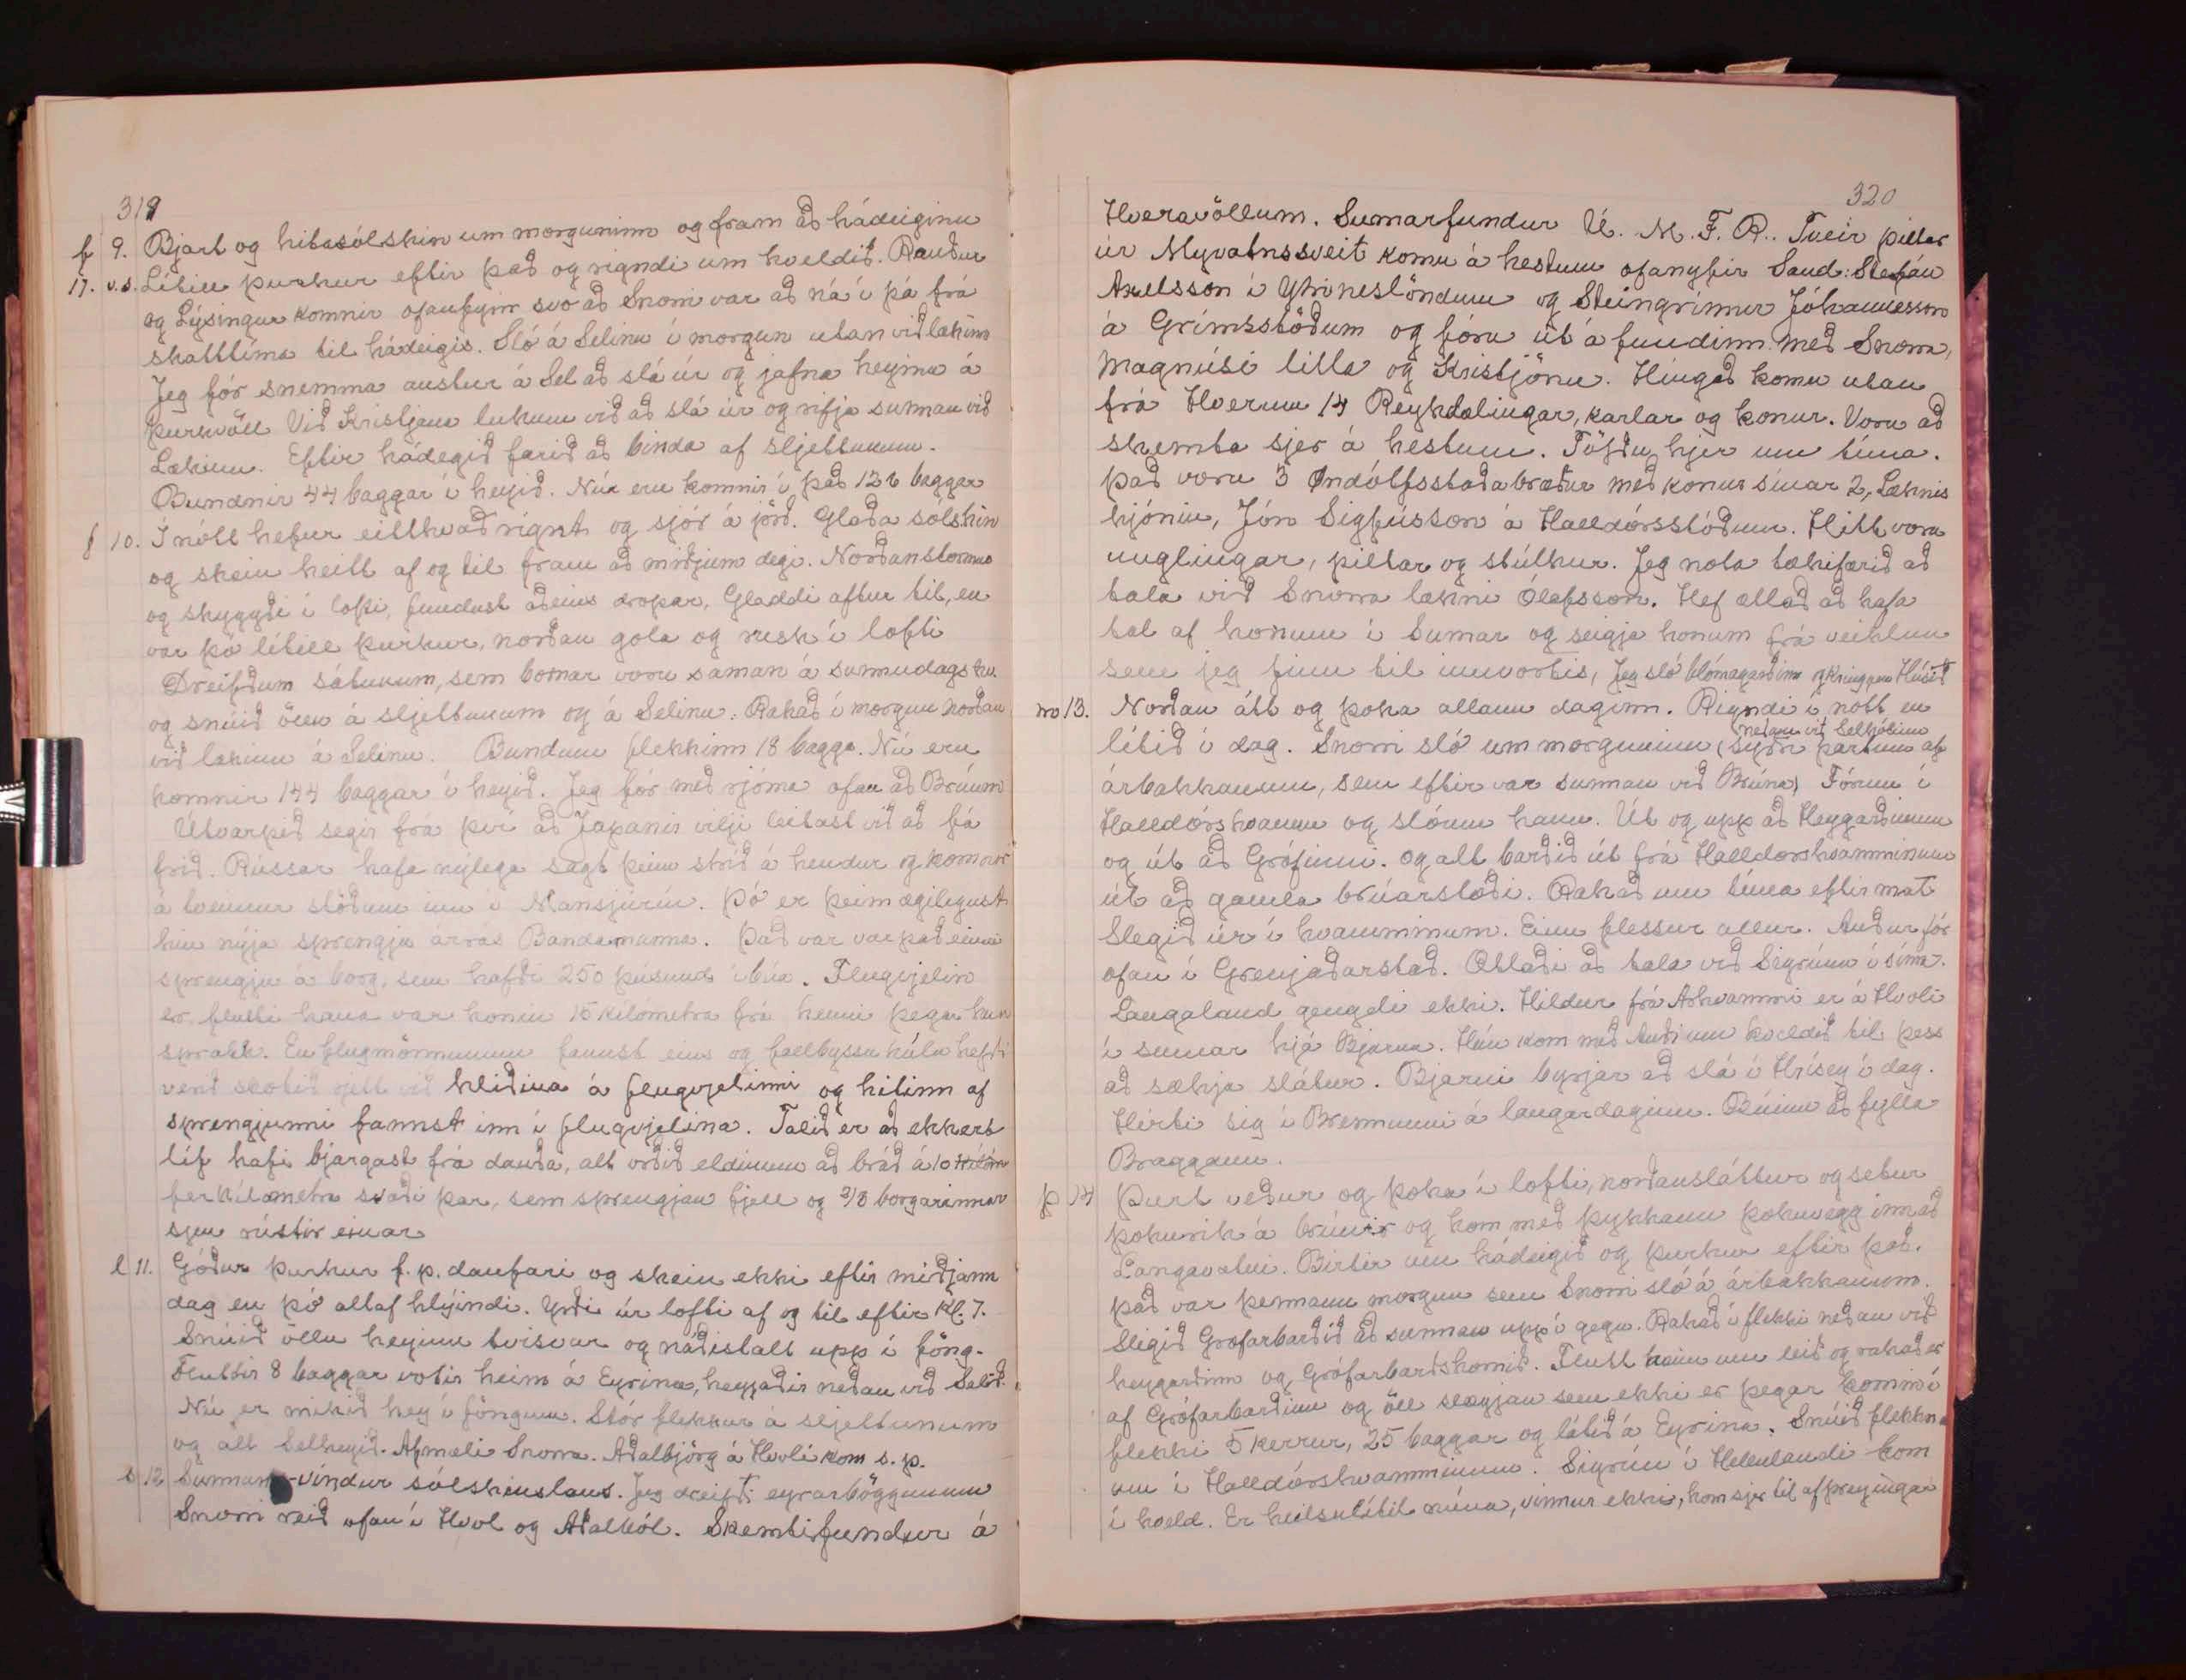 319
f 9. Bjart og hitasólskin um morguninn og fram að hádeiginu
17. v.s. Lítill þurkur eftir það og rigndi um kveldið. Rauður
og Lýsingur komnir ofanfyrir svo að Snorri var að ná í þá frá
skattlíma til hádeigis. Sló á Selinu í morgun utan við lækinn
Jeg fór snemma austur á Sel að slá úr og jafna heyinu á
þurkvöll Við Kristjana lukum við að slá úr og rifja sunnan við
Lækinn. Eftir hádegið farið að binda af sljettunum.
Bundnir 44 baggar í heyið. Nú eru komnir í það 126 baggar
f 10. Í nótt hefur eitthvað rignt og sjór á jörð. Glaða solskin
og skein heitt af og til fram að miðjum degi. Norðanstormur
og skyggði í lofti, fundust aðeins dropar. Gladdi aftur til, en
var þó lítill þurkur, norðan gola og resk í lofti
Dreifðum sátunum, sem bornar voru saman á sunnudagskv.
og snúið öllu á sljettunum og á Selinu. Rakað í morgun norðan
við lækinn á Selinu. Bundum flekkinn 18 bagga. Nú eru
komnir 144 baggar í heyið. Jeg fór með rjóma ofan að Brúum
Útvarpið segir frá því að Japanir vilji leitast við að fá
frið. Rússar hafa nýlega sagt þeim stríð á hendur og komnir
á tveimur stöðum inn í Mansjúríu. Þó er þeim ægilegust
hin nýja sprengju árrás Bandamanna. Það var varpað einni
sprengju á borg, sem hafði 250 þúsund íbúa. Flugvjelin
er flutti hana var komin 15 kílómetra frá henni þegar hun
sprakk. En flugmönnunum fannst eins og fallbyssu kúla hefði
verið skotið rjett við hliðina á flugvjelinni og hitinn af
sprengjunni fannst inn í flugvjelina. Talið er að ekkert
líf hafi bjargast frá dauða, alt orðið eldinum að bráð á 10
ferkílometra svæði þar, sem sprengjan fjell og 2/3 borgarinnar
sjeu rústir einar
l 11. Góður þurkur f. p. daufari og skein ekki eftir miðjann
dag en þó altaf hlýindi. Yrði úr lofti af og til eftir Kl. 7.
Snúið öllu heyinu tvisvar og náðist alt upp í föng.
Fluttir 8 baggar votir heim á Eyrina, heyjaðir neðan við Selið.
Nú er mikið hey í föngum. Stór flekkur á sljettunum
og alt Selheyið. Afmæli Snorra. Aðalbjörg á Hvoli kom s. p.
s 12 Sunnan-vindur sólskinslaus. Jeg dreifði eyrarböggunum
Snorri reið ofan í Hvol og Aðalból. Skemtifundur á
320
Hveravöllum. Sumarfundur U. M. F. R.. Tveir piltar
úr Myvatnssveit komu á hestum ofanyfir Sand: Stefán
Axelsson í Ytrineslöndum og Steingrímur Jóhannesson
á Grímsstöðum og fóru út á fundinn með Snorra,
Magnúsi litla og Kristjönu. Hingað komu utan
frá Hverum 14 Reykdælingar, karlar og konur. Voru að
skemta sjer á hestum. Töfðu hjer um tíma.
Það voru 3 Indólfsstaðabræður með konur sínar 2, Læknis
hjónin, Jón Sigfússon á Halldórsstöðum. Hitt voru
unglingar, piltar og stúlkur. Jeg nota tækifærið að
tala við Snorra lækni Ólafsson. Hef ællað að hafa
tal af honum í Sumar og seigja honum frá veiklun
sem jeg finn til innvortis, Jeg sló blómagarðinn og kringum Húsið
m 13. Norðan átt og þoka allann daginn. Rigndi í nótt en
neðan við Selhólinn
lítið í dag. Snorri sló um morguninn (syðri partinn af
árbakkanum, sem eftir var sunnan við Brúna) Fórum í
Halldórshvamm og slóum hann. Út og upp að Heygarðinum
og út að Grófinni. og alt barðið út frá Halldorshvamminum
út að gamla brúarstæði. Rakað um tíma eftir mat
Slegið úr í hvamminum. Einn flessur allur. Auður fór
ofan í Grenjaðarstað. Ætlaði að tala við Sigrúnu í síma.
Laugaland gengdi ekki. Hildur frá Arhvammi er á Hvoli
í sumar hjá Bjarna. Hún kom með Auði um kveldið til þess
að sækja slátur. Bjarni byrjar að slá í Hrísey í dag.
Hirti sig í Brennunni á laugardaginn. Búinn að fylla
Braggann.
þ 14 Þurt veður og þoka í lofti, norðansláttur og setur
þokurik á brúnir og kom með þykkann þokuvegg inn að
Langavatni. Birtir um hádeigið og þurkur eftir það.
það var þennann morgun sem Snorri sló á árbakkanum.
Sligið Grófarbarðið að sunnan upp í gegn. Rakað í flekki neðan við
heygarðinn og Grófarbarðshornið. Flutt heim um leið og rakað er
af Grófarbarðinu og öll slægjan sem ekki er þegar komin í
flekki 5 kerrur, 25 baggar og látið á Eyrina. Snúið flekkn
um í Halldórshvamminum. Sigrún í Hellulandi kom
í kveld. Er heilsulítil núna, vinnur ekki, kom sjer til afþreyingar